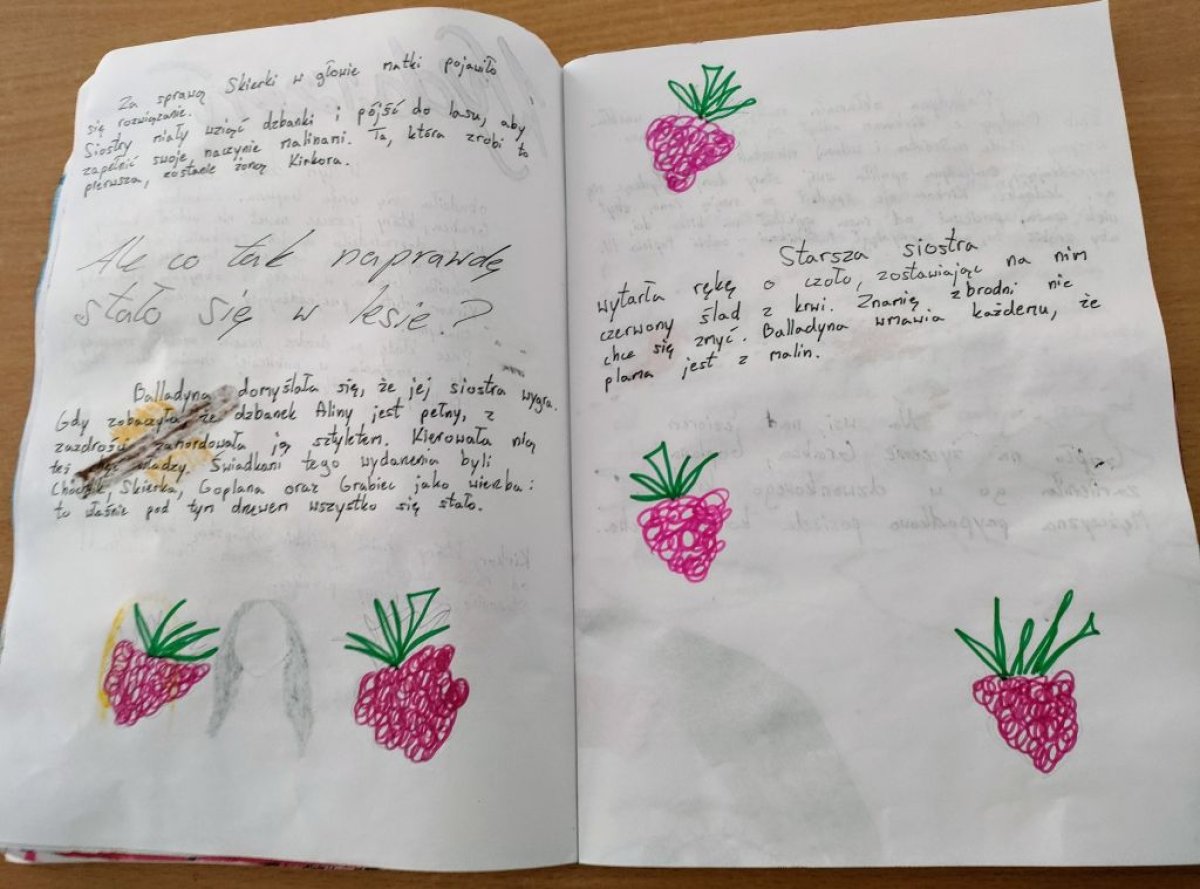 Za sprawą Skierki w głowie matki pojawiło
się rozwiązanie.
Siostry miały wziąść dzbanki i pójść do lasu, aby
zapełnić swoje naczynie malinami. Ta, która zrobi to
pierwsza, zostanie żoną Kirkora.
Ale co tak naprawdę
stało się w lesie?
Balladyna domyślała się, że jej siostra wygra.
Gdy zobaczyła że dzbanek Aliny jest pełny, z
zazdrości zamordowała ją sztyletem. Kierowała nią
też władzy. Świadkami tego wydarzenia byli
Chochlik, Skierka, Goplana oraz Grabiec jako wierzba:
to właśnie pod tym drzewem wszystko się stało.
Starsza siostra
wytarła rękę o czoło, zostawiając na nim
czerwony ślad z krwi. Znamię zbrodni nie
chce się zmyć. Balladyna wmawia każdemu, że
plama jest z malin.